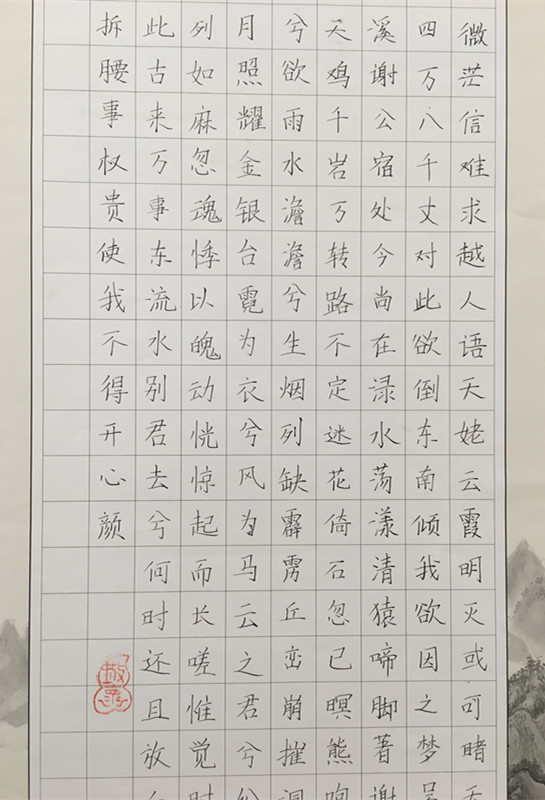 微茫信难求越人语天姥云霞明灭或可睹天
四万八千丈对此欲倒东南倾我欲因之梦吴
溪谢公宿处今尚在渌水荡漾清猿啼脚著谢
天鸡千岩万转路不定迷花倚石忽已暝熊咆
兮欲雨水澹澹兮生烟列缺霹雳丘峦崩摧洞
月照耀金银台霓为衣兮风为马云之君兮纷
列如麻忽魂悸以魄动恍惊起而长嗟惟觉时
此古来万事东流水别君去兮何时还且放白
拆腰事权贵使我不得开心颜